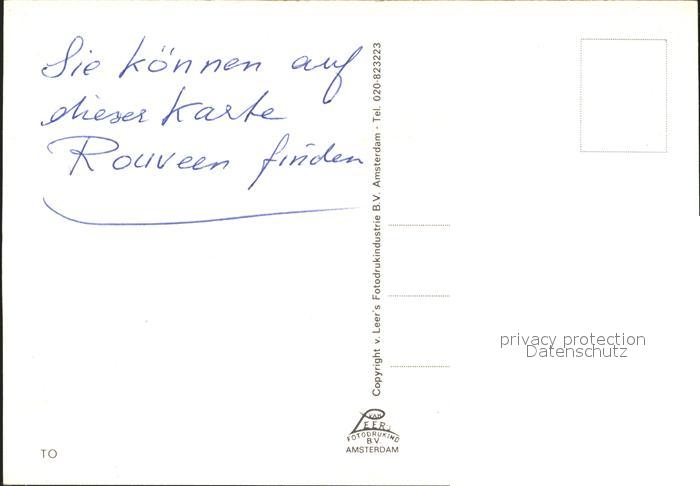 Sie können auf
dieser Karte
Rouveen finden
Copyright v. Leer's Fotodrukindustrie B.V. Amsterdam - Tel. 020-823223
privacy protection
Datenschutz
VAN
LEER'S
FOTODRUKIND
B.V.
AMSTERDAM
TO